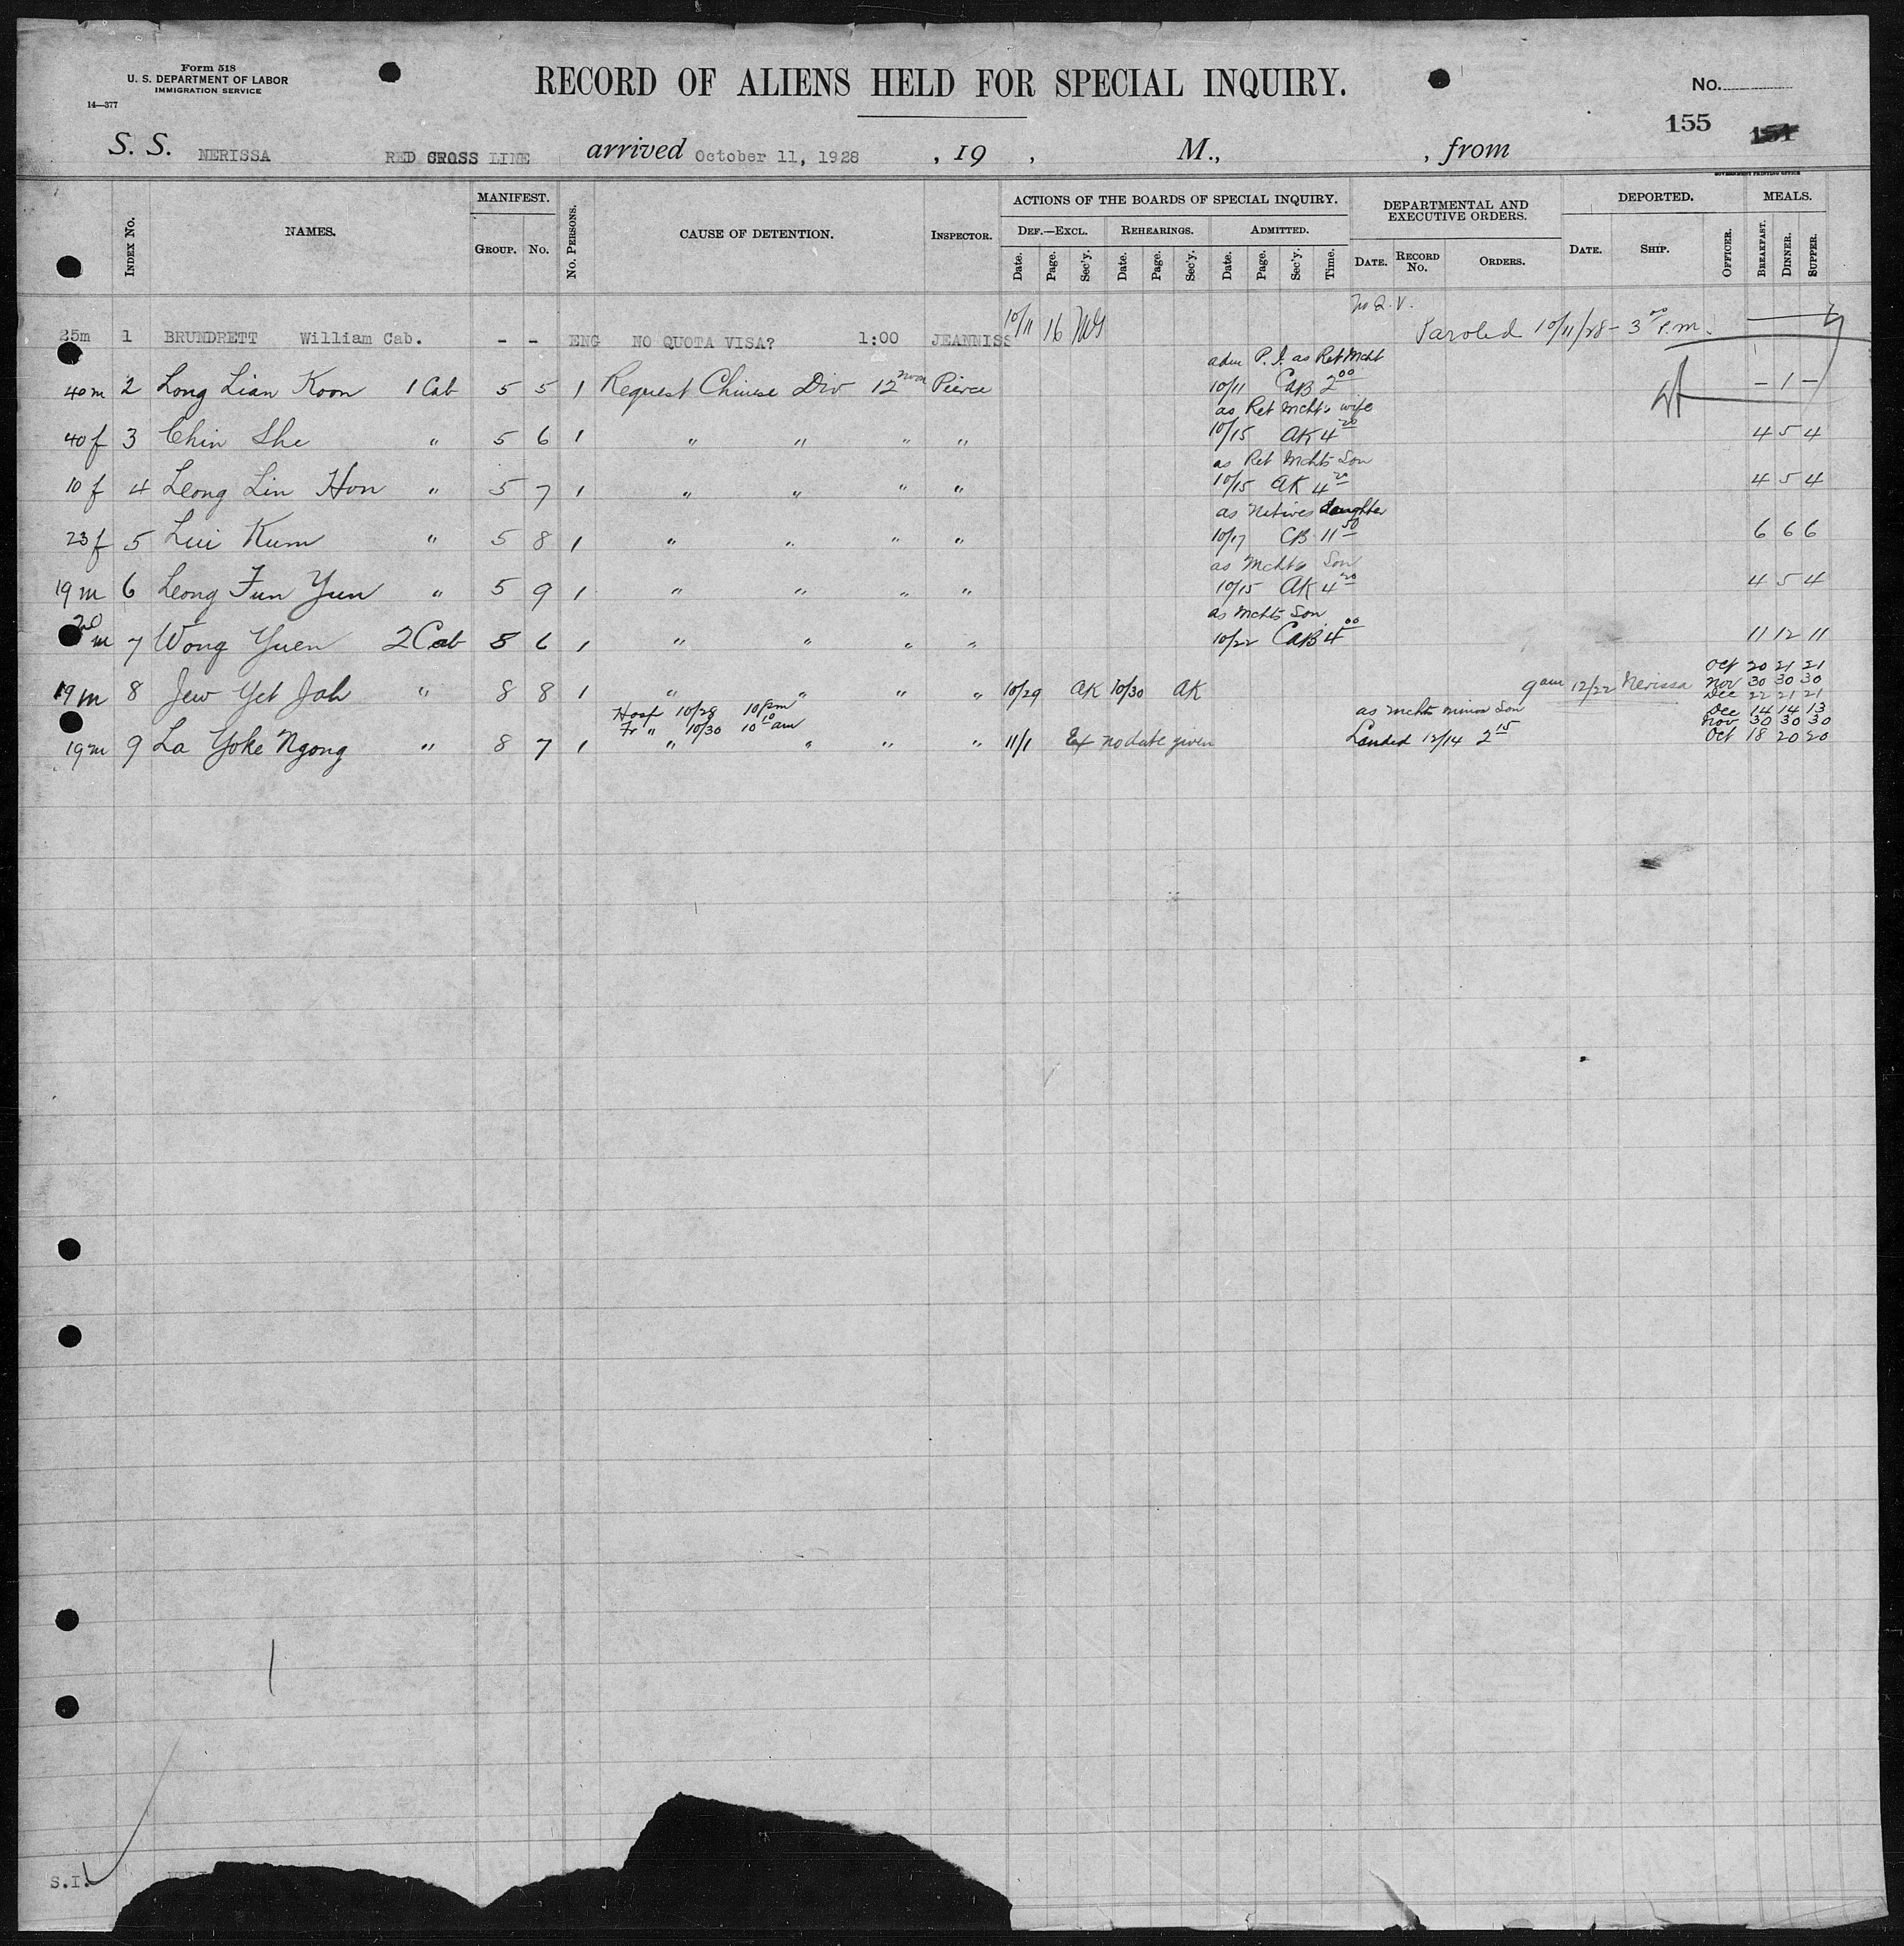 Form 518
U. S. DEPARTMENT OF LABOR
IMMIGRATION SERVICE
14—377
RECORD OF ALIENS HELD FOR SPECIAL INQUIRY.
No.
155 151
S. S. NERISSA RED CROSS LINE arrived October 11, 1928 , 19 , M., , from
GOVERNMENT PRINTING OFFICE
INDEX No. NAMES. MANIFEST. GROUP. No. No. PERSONS. CAUSE OF DETENTION. INSPECTOR. ACTIONS OF THE BOARDS OF SPECIAL INQUIRY. DEPARTMENTAL AND EXECUTIVE ORDERS. DEPORTED. MEALS.
DEF.—EXCL. REHEARINGS. ADMITTED.
Date. Page. Sec'y. Date. Page. Sec'y. Date. Page. Sec'y. Time. DATE. RECORD No. ORDERS. DATE. SHIP. OFFICER. BREAKFAST. DINNER. SUPPER.
no Q. V.
25m 1 BRUNDRETT William Cab. - - ENG NO QUOTA VISA? 1:00 JEANNISS 10/11 16 Paroled 10/11/28 - 3 00 P.m.
adm P. I. as Ret Mcht
40 m 2 Long Lian Koon 1 Cab 5 5 1 Request Chinese Div 12 noon Pierce 10/11 CaB 2 00 - 1 -
as Ret Mcht's wife
40 f 3 Chin She " 5 6 1 " " " " 10/15 AK 4 20 4 5 4
as Ret Mchts Son
10 f 4 Leong Lin Hon " 5 7 1 " " " " 10/15 AK 4 20 4 5 4
as Natives daughter
23 f 5 Lui Kum " 5 8 1 " " " " 10/17 CB 11 50 6 6 6
as Mchts Son
19 m 6 Leong Fun Yun " 5 9 1 " " " " 10/15 AK 4 20 4 5 4
as Mchts Son
20 m 7 Wong Yuen 2 Cab 8 6 1 " " " " 10/22 CaB 4 00 11 12 11
Oct 20 21 21
19 m 8 Jew Yet Jah " 8 8 1 " " " " 10/29 AK 10/30 AK 9 am 12/22 Nerissa Nov 30 30 30
Dec 22 21 21
Hosp 10/28 10 pm as mchts minor son Dec 14 14 13
Fr " 10/30 10 10 am Nov 30 30 30
19 m 9 La Yoke Ngong " 8 7 1 " " " " 11/1 Ex no date given Landed 12/14 2 15 Oct 18 20 20
S.I.